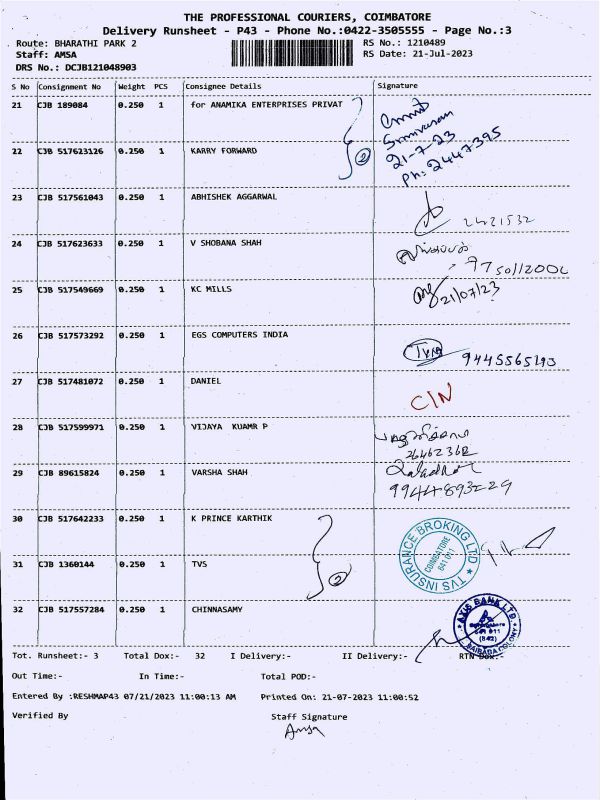 THE PROFESSIONAL COURIERS, COIMBATORE
Delivery Runsheet - P43 - Phone No.:0422-3505555 - Page No.:3
Route: BHARATHI PARK 2 RS No.: 1210489
Staff: AMSA RS Date: 21-Jul-2023
DRS No.: DCJB121048903
S No Consignment No Weight PCS Consignee Details Signature
21 CJB 189084 0.250 1 for ANAMIKA ENTERPRISES PRIVAT
Srinivasan
21-7-23
22 CJB 517623126 0.250 1 KARRY FORWARD 2 Ph: 2447395
23 CJB 517561043 0.250 1 ABHISHEK AGGARWAL
2421532
24 CJB 517623633 0.250 1 V SHOBANA SHAH
25 CJB 517549669 0.250 1 KC MILLS 21/07/23
26 CJB 517573292 0.250 1 EGS COMPUTERS INDIA
27 CJB 517481072 0.250 1 DANIEL C/N
28 CJB 517599971 0.250 1 VIJAYA KUAMR P
29 CJB 89615824 0.250 1 VARSHA SHAH
30 CJB 517642233 0.250 1 K PRINCE KARTHIK
TVS INSURANCE BROKING LTD
COIMBATORE
641 011
31 CJB 1360144 0.250 1 TVS 2
32 CJB 517557284 0.250 1 CHINNASAMY
AXIS BANK LTD.
641 011
(842)
SAIBABA COLONY
Tot. Runsheet:- 3 Total Dox:- 32 I Delivery:- II Delivery:- RTN Dox:-
Out Time:- In Time:- Total POD:-
Entered By :RESHMAP43 07/21/2023 11:00:13 AM Printed On: 21-07-2023 11:00:52
Verified By Staff Signature
Amsa